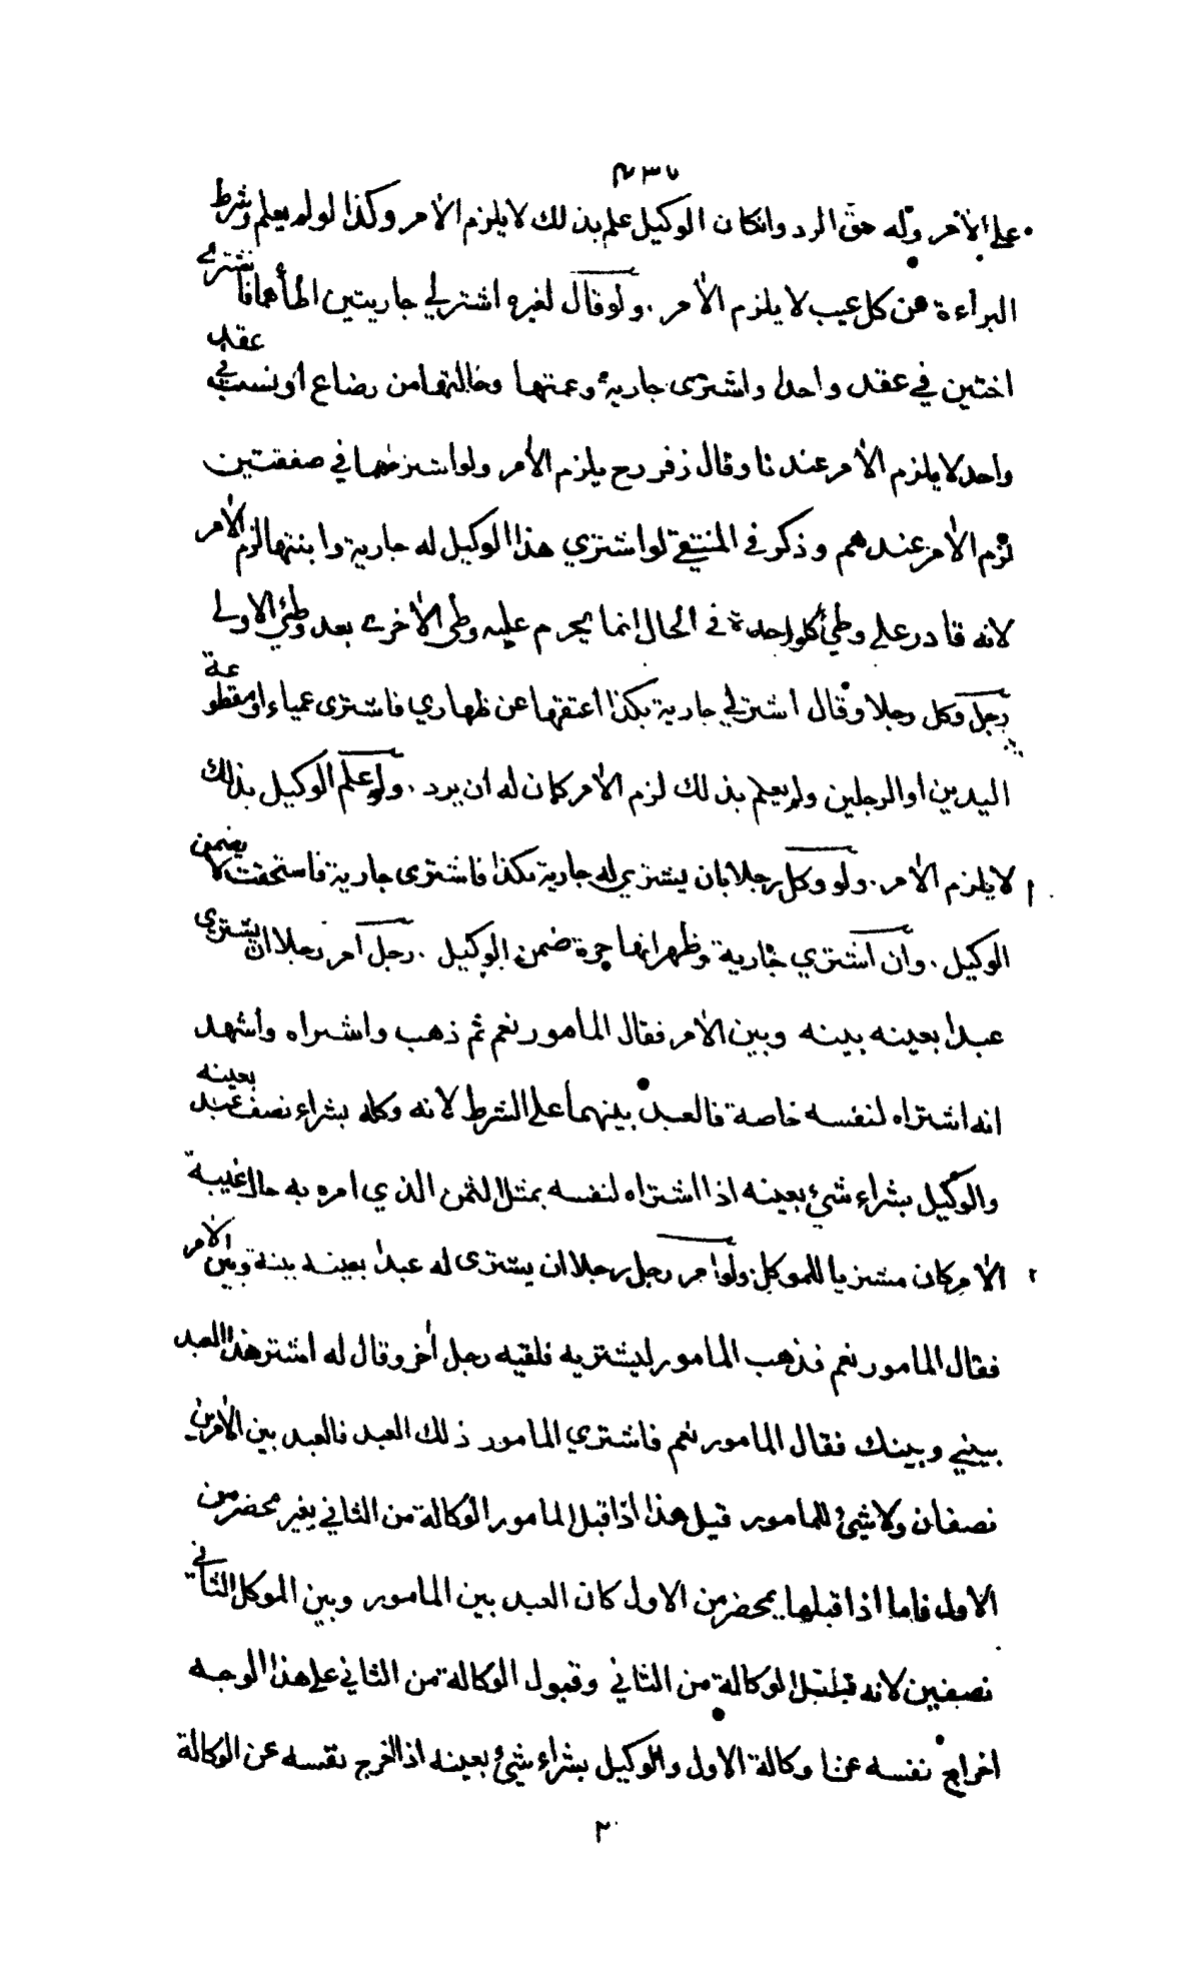 على الآمر وله حق الرد وانكان الوكيل علم بذلك لا يلزم الآمر وكذا لو لم يعلم وشرط
البرأءة من كل عيب لا يلزم الآمر . ولو قال لغيره اشتر لي جاريتين اطأهما فاشترى
اختين في عقد واحد او اشترى جارية وعمتها وخالتها من رضاع او نسب في عقد
واحد لا يلزم الآمر عندنا وقال زفر رح يلزم الآمر ولو اشترىهما في صفقتين
لزم الآمر عندهم وذكر في المنتقى لو اشتري هذا الوكيل له جارية وابنتها لزم الآمر
لانه قادر على وطئ كل واحدة في الحال انما يحرم عليه وطى الأخرى بعد وطئ الاولى
رجل وكل رجلا وقال اشتر لي جارية بكذا اعتقها عن ظهاري فاشترى عمياء او مقطوعة
اليدين او الرجلين ولم يعلم بذلك لزم الآمر كان له ان يرد . ولو علم الوكيل بذلك
لا يلزم الآمر . ولو وكل رجلا بان يشتري له جارية بكذا فاشترى جارية فاستحقت لا يضمن
الوكيل . وان اشتري جارية وظهر انها حرة ضمن الوكيل . رجل آمر رجلا ان يشترى
عبدا بعينه بينه وبين الآمر فقال المامور نعم ثم ذهب واشتراه واشهد
انه اشتراه لنفسه خاصة فالعبد بينهما على الشرط لانه وكله بشراء نصف عبد بعينه
والوكيل بشراء شئ بعينه اذا اشتراه لنفسه بمثل الثمن الذي امره به حال غيبة
الآمر كان مشتريا للموكل ولو امر رجل رجلا ان يشترى له عبدا بعينه بينه وبين الآمر
فقال المامور نعم فذهب المامور ليشتريه فلقيه رجل أخر وقال له اشتر هذا العبد
بيني وبينك فقال المامور نعم فاشتري المامور ذلك العبد فالعبد بين الآمرين
نصفان ولا شئ للمامور قيل هذا اذا قبل المامور الوكالة من الثاني بغير محضر من
الاول فاما اذا قبلها بمحضر من الاول كان العبد بين المامور وبين الموكل الثاني
نصفين لانه قبل الوكالة من الثاني وقبول الوكالة من الثاني على هذا الوجه
اخراج نفسه عن وكالة الاول والوكيل بشراء شئ بعينه اذا اخرج نفسه عن الوكالة
٢